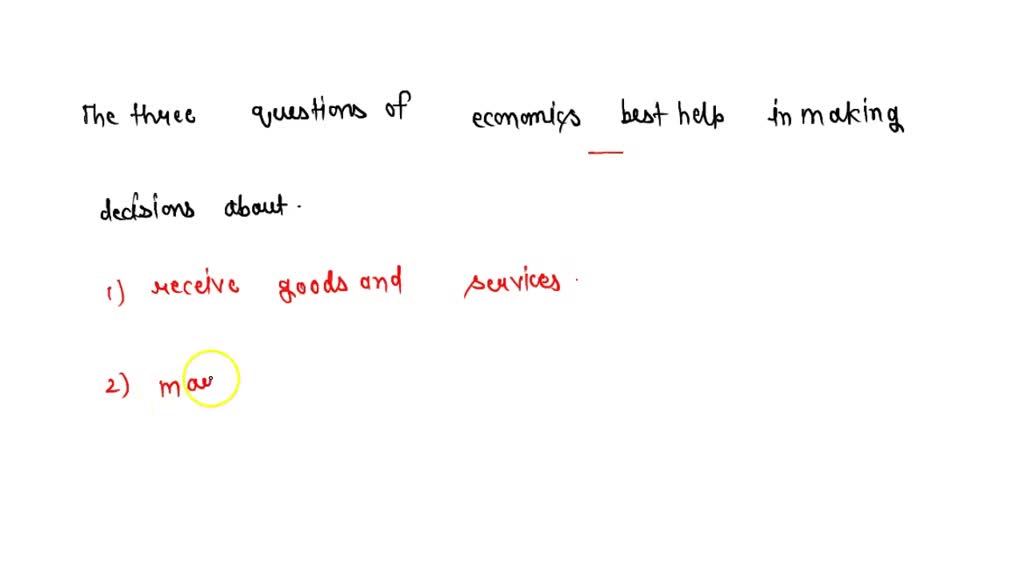 The three questions of economics best help in making
decisions about.
1) receive goods and services.
2)